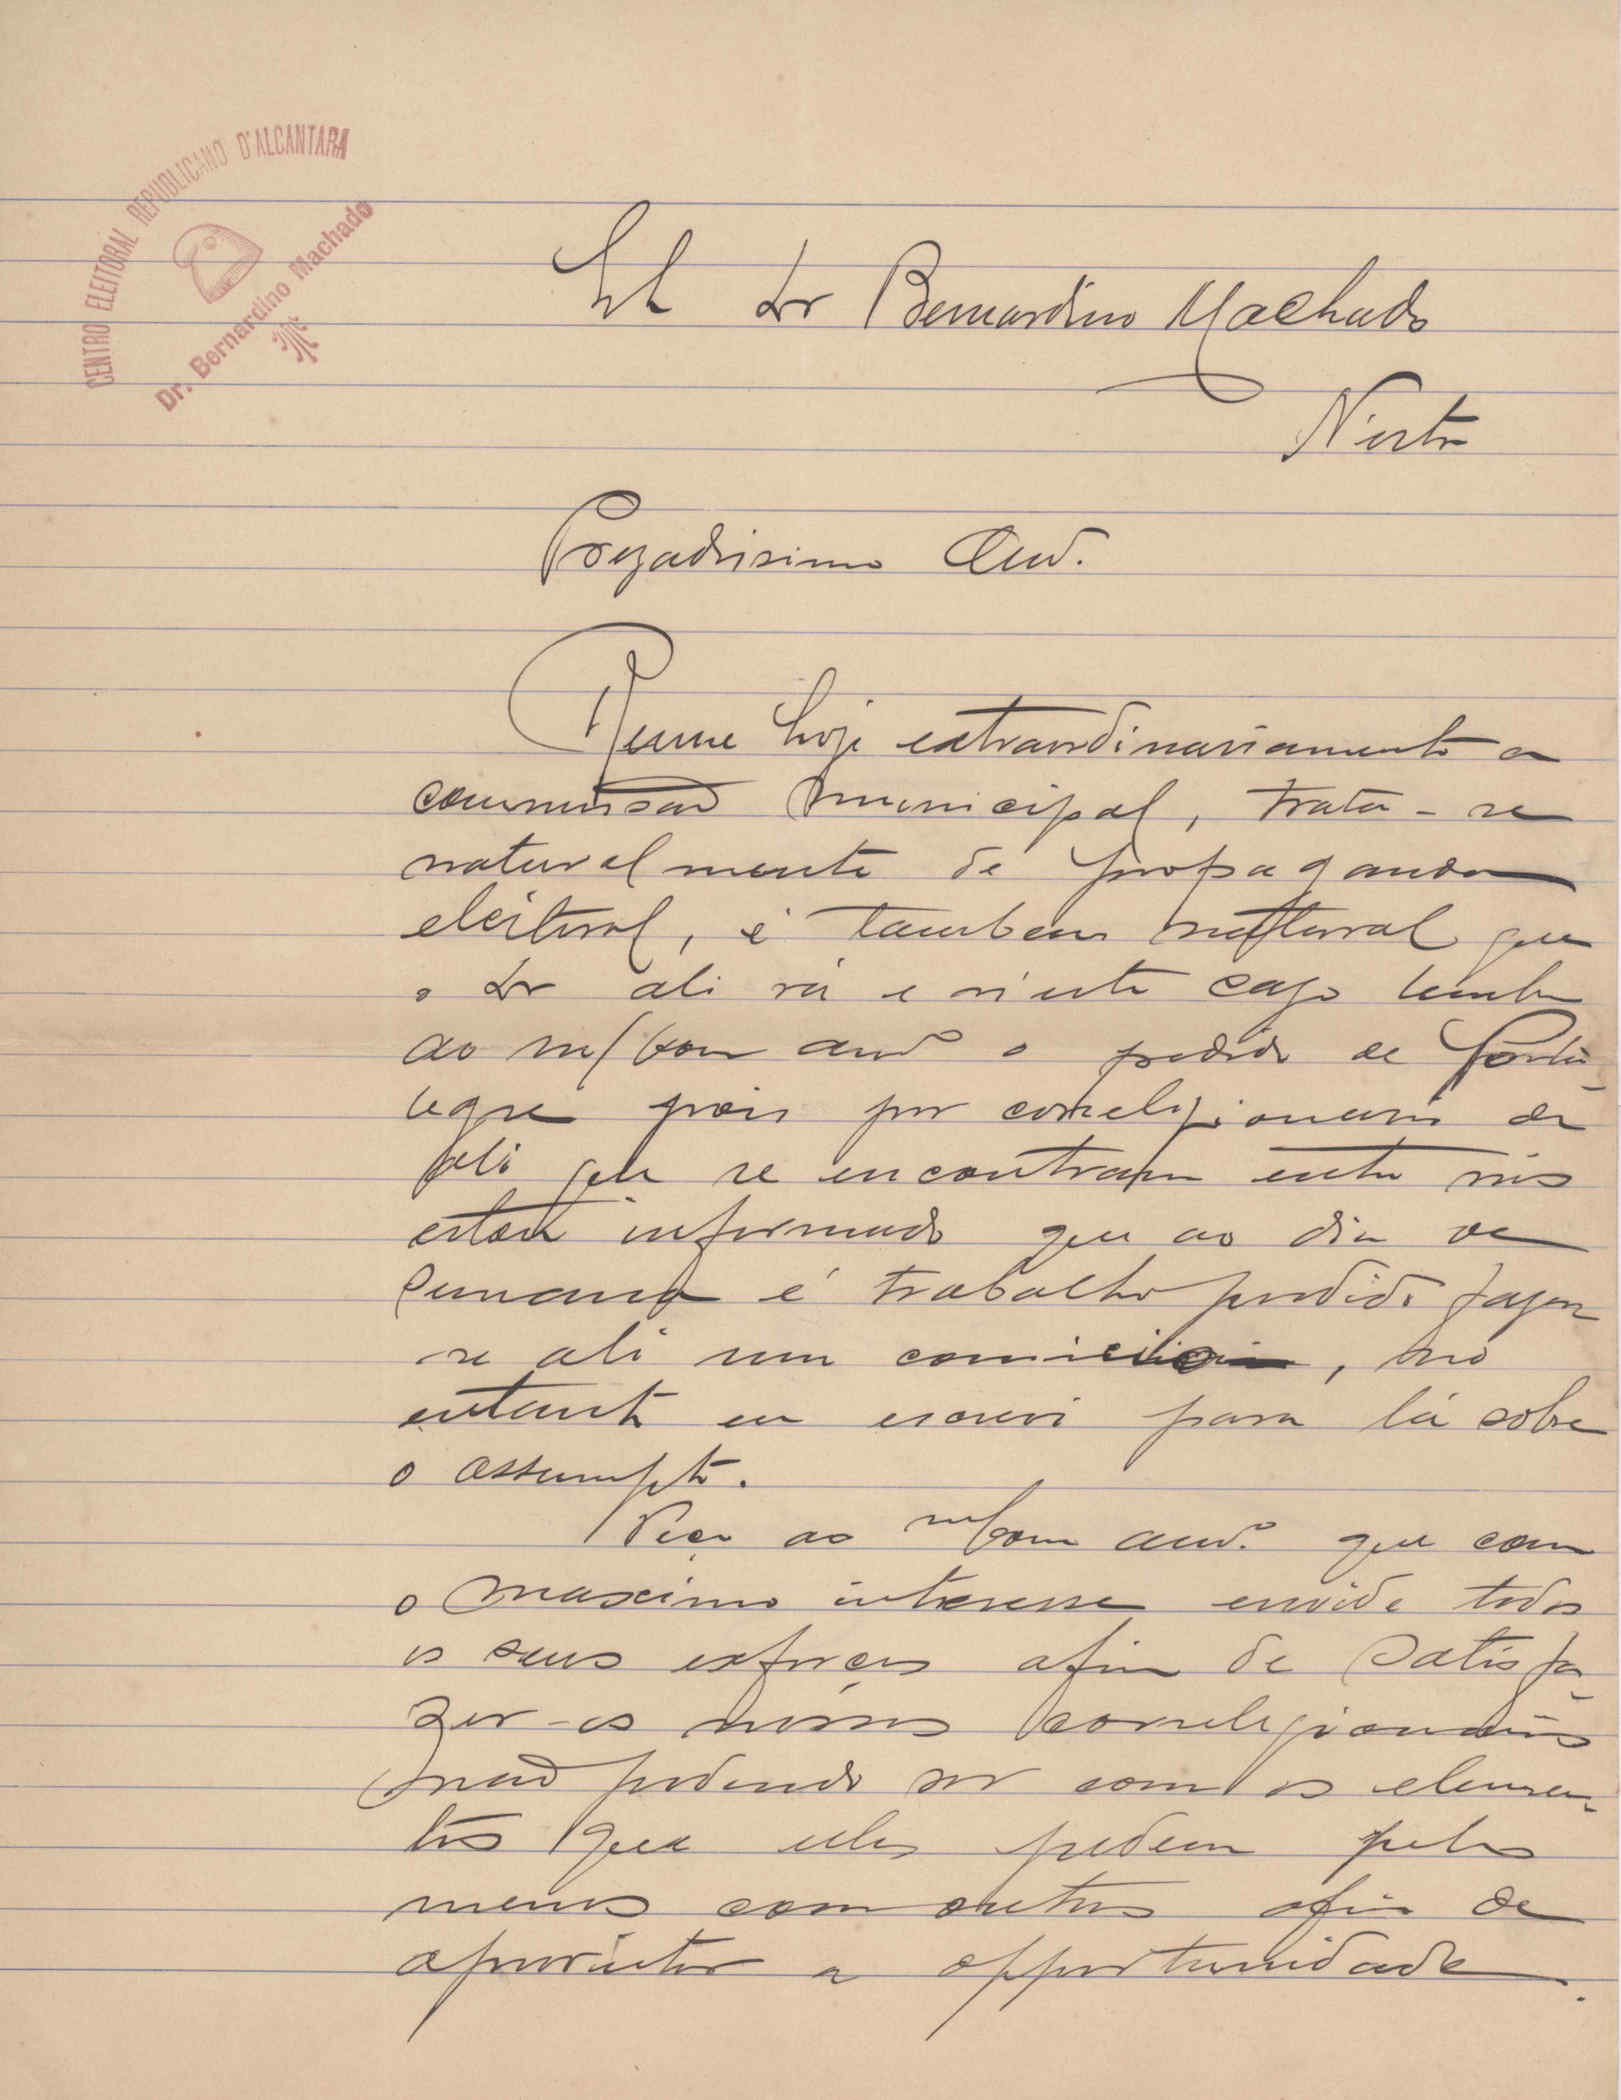 CENTRO ELEITORAL REPUBLICANO D'ALCANTARA
Dr. Bernardino Machado
Dr Bernardino Machado
N'esta
Prezadissimo Am.º
Reune hoje extraordinariamente a
commissão municipal, trata-se
naturalmente de propaganda
eleitoral, é tambem natural que
o Dr ali vá e n'este caso lembro
ao m/ bom amº o pedido de Porta-
legre pois por correligionarios de
ali que se encontram entre nós
estou informado que ao dia de
semana é trabalho perdido fazer
se ali um comicio, no
entanto eu escrevi para lá sobre
o assumpto.
Peço ao m/ bom amº. que com
o maximo interesse envide todos
os seus esforços afim de satisfa-
zer-os nossos correligionarios
não podendo ser com os elemen-
tos que eles pedem pelo
menos com outros afim de
aproveitar a opportunidade.